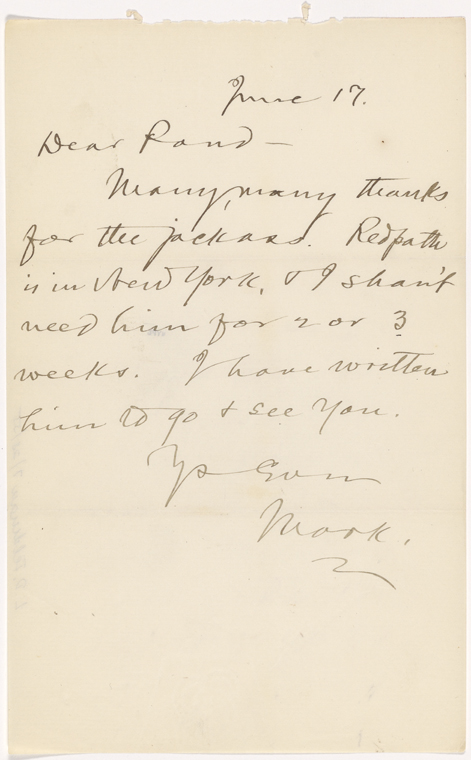 June 17.
Dear Pond—
Many, many thanks
for the jackass. Redpath
is in New York, & I shan't
need him for 2 or 3
weeks. I have written
him to go & see you.
Ys Ever
Mark.